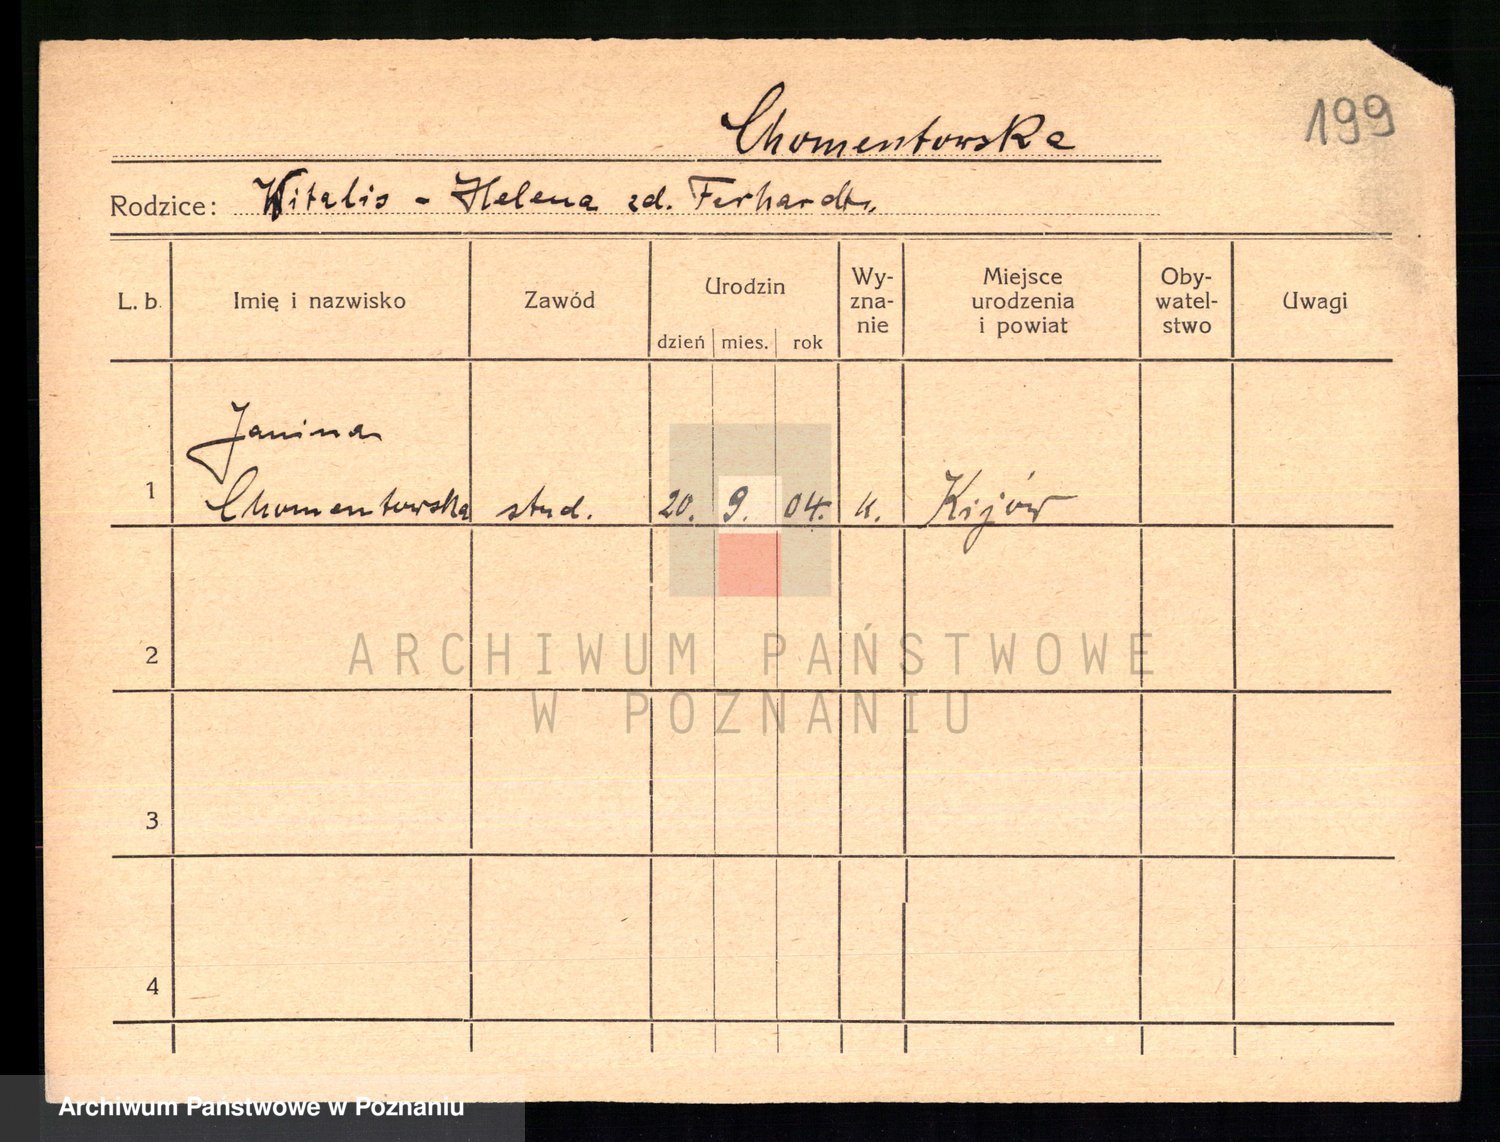 199
Chomentowska
Rodzice: Witalis - Helena zd. Ferhardt.
L. b. Imię i nazwisko Zawód Urodzin Wy-zna-nie Miejsce urodzenia i powiat Oby-watel-stwo Uwagi
dzień mies. rok
Janina
1 Chomentowska stud. 20. 9. 04. k. Kijów
2
ARCHIWUM PAŃSTWOWE
W POZNANIU
3
4
Archiwum Państwowe w Poznaniu